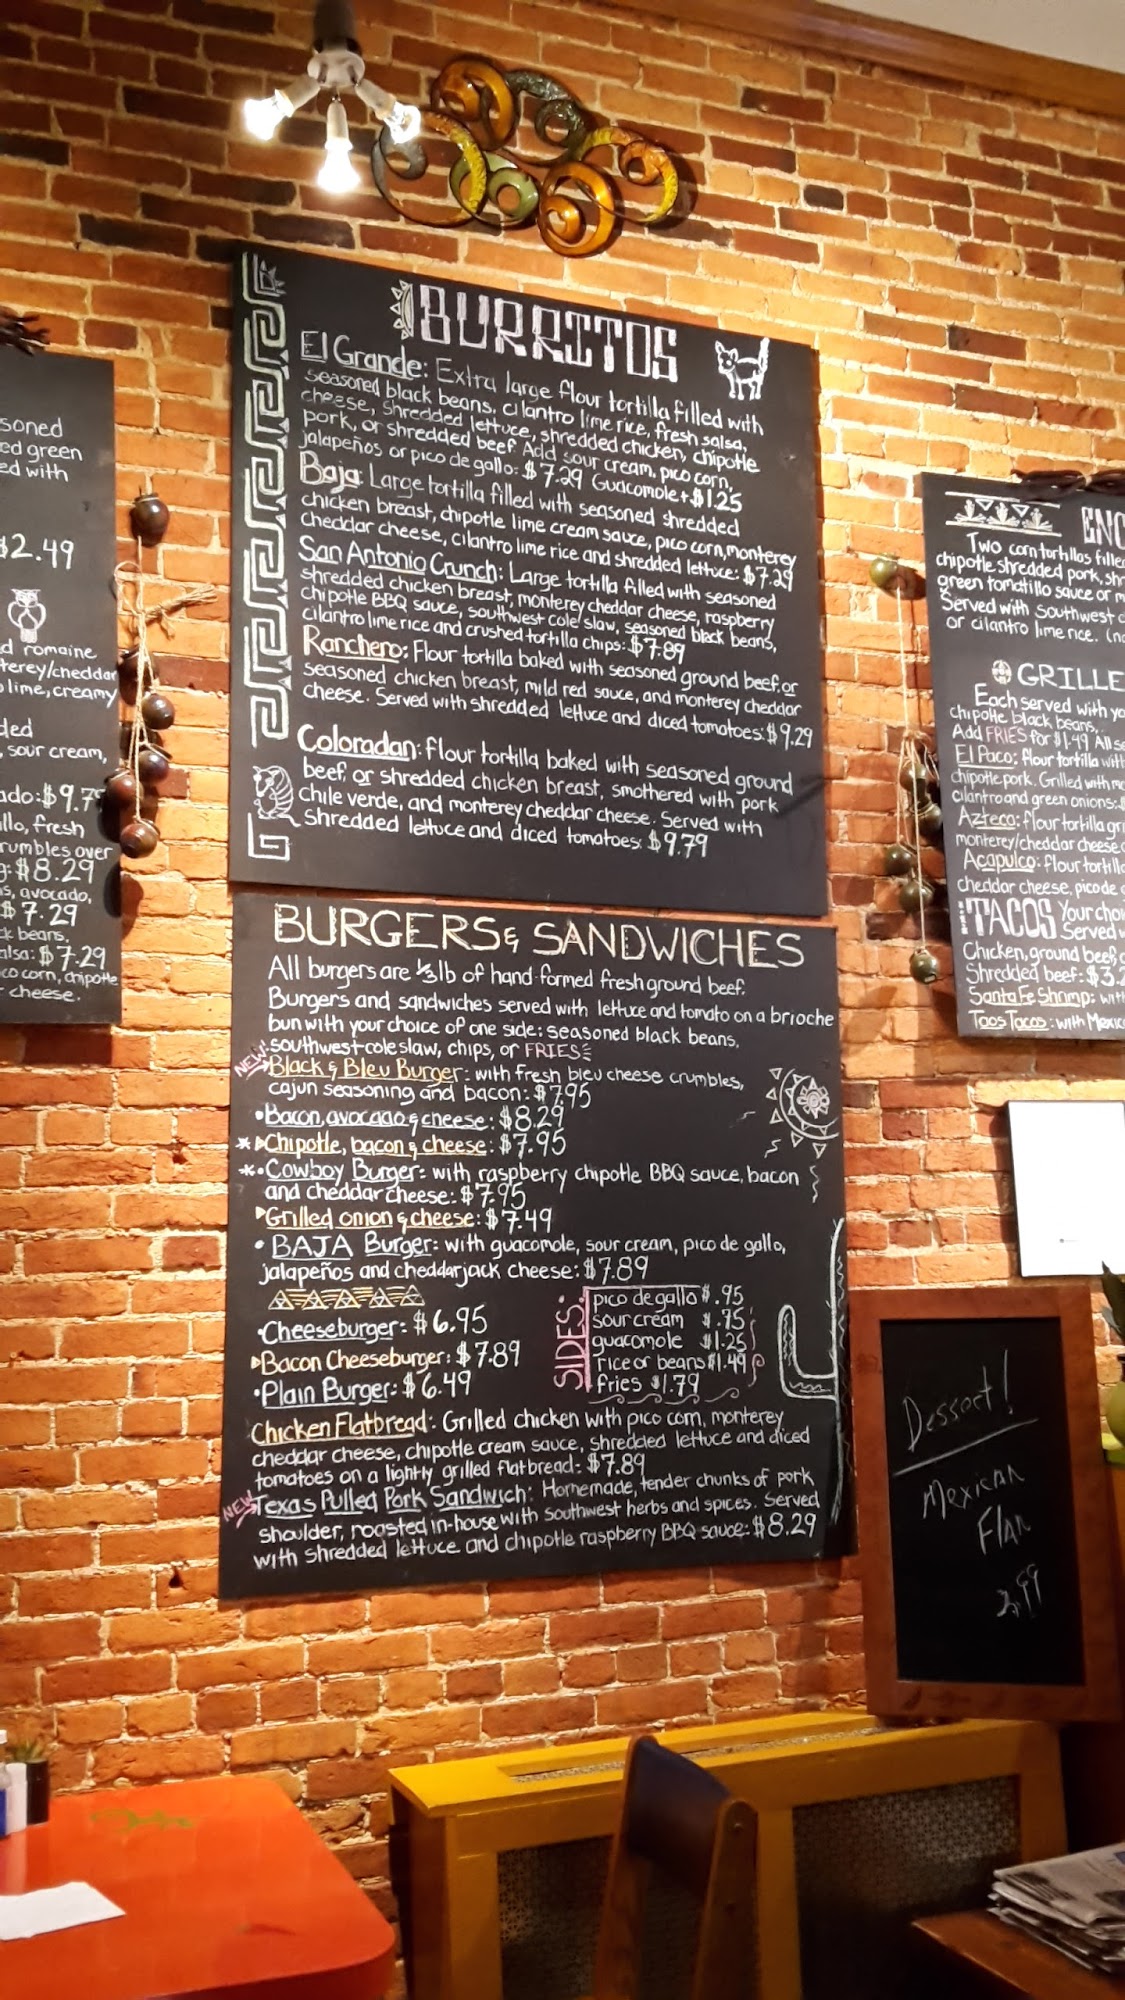 soned
ed green
ed with
$2.49
d romaine
terey/cheddar
lime, creamy
ded
, sour cream,
ado: $9.75
llo, fresh
rumbles over
g: $8.29
s, avocado,
$7.29
k beans,
alsa: $7.29
co corn, chipotle
cheese.
BURRITOS
El Grande: Extra large flour tortilla filled with
seasoned black beans, cilantro lime rice, fresh salsa,
cheese, shredded lettuce, shredded chicken, chipotle
pork, or shredded beef. Add sour cream, pico corn,
jalapeños or pico de gallo: $7.29 Guacomole + $1.25
Baja: Large tortilla filled with seasoned shredded
chicken breast, chipotle lime cream sauce, pico corn, monterey
cheddar cheese, cilantro lime rice and shredded lettuce: $7.29
San Antonio Crunch: Large tortilla filled with seasoned
shredded chicken breast, monterey cheddar cheese, raspberry
chipotle BBQ sauce, southwest cole slaw, seasoned black beans,
cilantro lime rice and crushed tortilla chips: $7.89
Ranchero: Flour tortilla baked with seasoned ground beef, or
seasoned chicken breast, mild red sauce, and monterey cheddar
cheese. Served with shredded lettuce and diced tomatoes: $9.29
Coloradan: flour tortilla baked with seasoned ground
beef, or shredded chicken breast, smothered with pork
chile verde, and monterey cheddar cheese. Served with
shredded lettuce and diced tomatoes: $9.79
BURGERS & SANDWICHES
All burgers are ⅓ lb of hand-formed fresh ground beef.
Burgers and sandwiches served with lettuce and tomato on a brioche
bun with your choice of one side: seasoned black beans,
southwest coleslaw, chips, or FRIES
NEW Black & Bleu Burger: with fresh bleu cheese crumbles,
cajun seasoning and bacon: $7.95
•Bacon, avocado & cheese: $8.29
*▸Chipotle, bacon & cheese: $7.95
*•Cowboy Burger: with raspberry chipotle BBQ sauce, bacon
and cheddar cheese: $7.95
▸Grilled onion & cheese: $7.49
• BAJA Burger: with guacomole, sour cream, pico de gallo,
jalapeños and cheddarjack cheese: $7.89
•Cheeseburger: $6.95
▸Bacon Cheeseburger: $7.89
•Plain Burger: $6.49
SIDES:
pico de gallo $.95
sour cream $.75
guacomole $1.25
rice or beans $1.49
fries $1.79
Chicken Flatbread: Grilled chicken with pico corn, monterey
cheddar cheese, chipotle cream sauce, shredded lettuce and diced
tomatoes on a lightly grilled flatbread: $7.89
NEW Texas Pulled Pork Sandwich: Homemade, tender chunks of pork
shoulder, roasted in-house with Southwest herbs and spices. Served
with shredded lettuce and chipotle raspberry BBQ sauce: $8.29
ENC
Two corn tortillas fille
chipotle shredded pork, shr
green tomatillo sauce or m
Served with southwest c
or cilantro lime rice. (no
GRILLE
Each served with yo
chipotle black beans,
Add FRIES for $1.49 All se
El Paco: flour tortilla with
chipotle pork. Grilled with mo
cilantro and green onions:
Azteco: flour tortilla gri
monterey/cheddar cheese
Acapulco: flour tortilla
cheddar cheese, pico de
TACOS Your choi
Served w
Chicken, ground beef,
Shredded beef: $3.2
Santa Fe Shrimp: with
Taos Tacos: with Mexic
Dessert!
Mexican
Flan
2.99